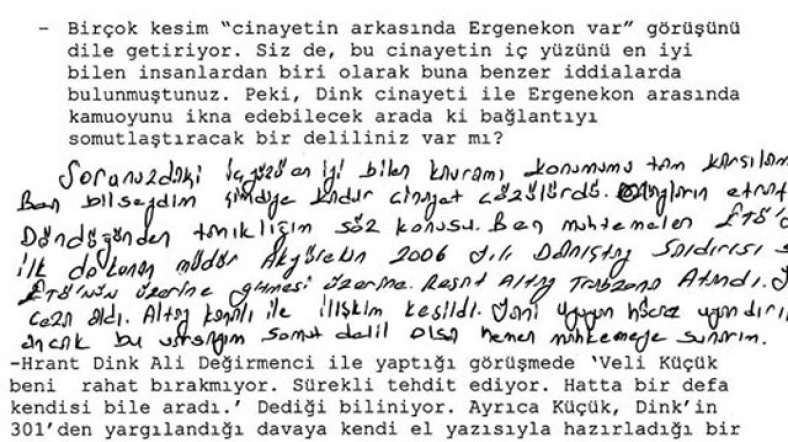 - Birçok kesim “cinayetin arkasında Ergenekon var” görüşünü
dile getiriyor. Siz de, bu cinayetin iç yüzünü en iyi
bilen insanlardan biri olarak buna benzer iddialarda
bulunmuştunuz. Peki, Dink cinayeti ile Ergenekon arasında
kamuoyunu ikna edebilecek arada ki bağlantıyı
somutlaştıracak bir deliliniz var mı?
Sorunuzdaki iç yüzü en iyi bilen kavramı konumumu tam karşılam
Ben bilseydim şimdiye kadar cinayet çözülürdü. etraf
Döndüğünden tanıklığım söz konusu. Ben muhtemelen ETÖ'
ilk dokunan müdür Akyürekin 2006 yılı Danıştay Saldırısı s
ETÖ'nün üzerine gitmesi üzerine. Reşat Altay Trabzona Atandı.
ceza aldı. Altay kanalı ile ilişkim kesildi. Yani
ancak bu somut delil olsa hemen mahkemeye sunarım.
-Hrant Dink Ali Değirmenci ile yaptığı görüşmede ‘Veli Küçük
beni rahat bırakmıyor. Sürekli tehdit ediyor. Hatta bir defa
kendisi bile aradı.’ Dediği biliniyor. Ayrıca Küçük, Dink’in
301’den yargılandığı davaya kendi el yazısıyla hazırladığı bir